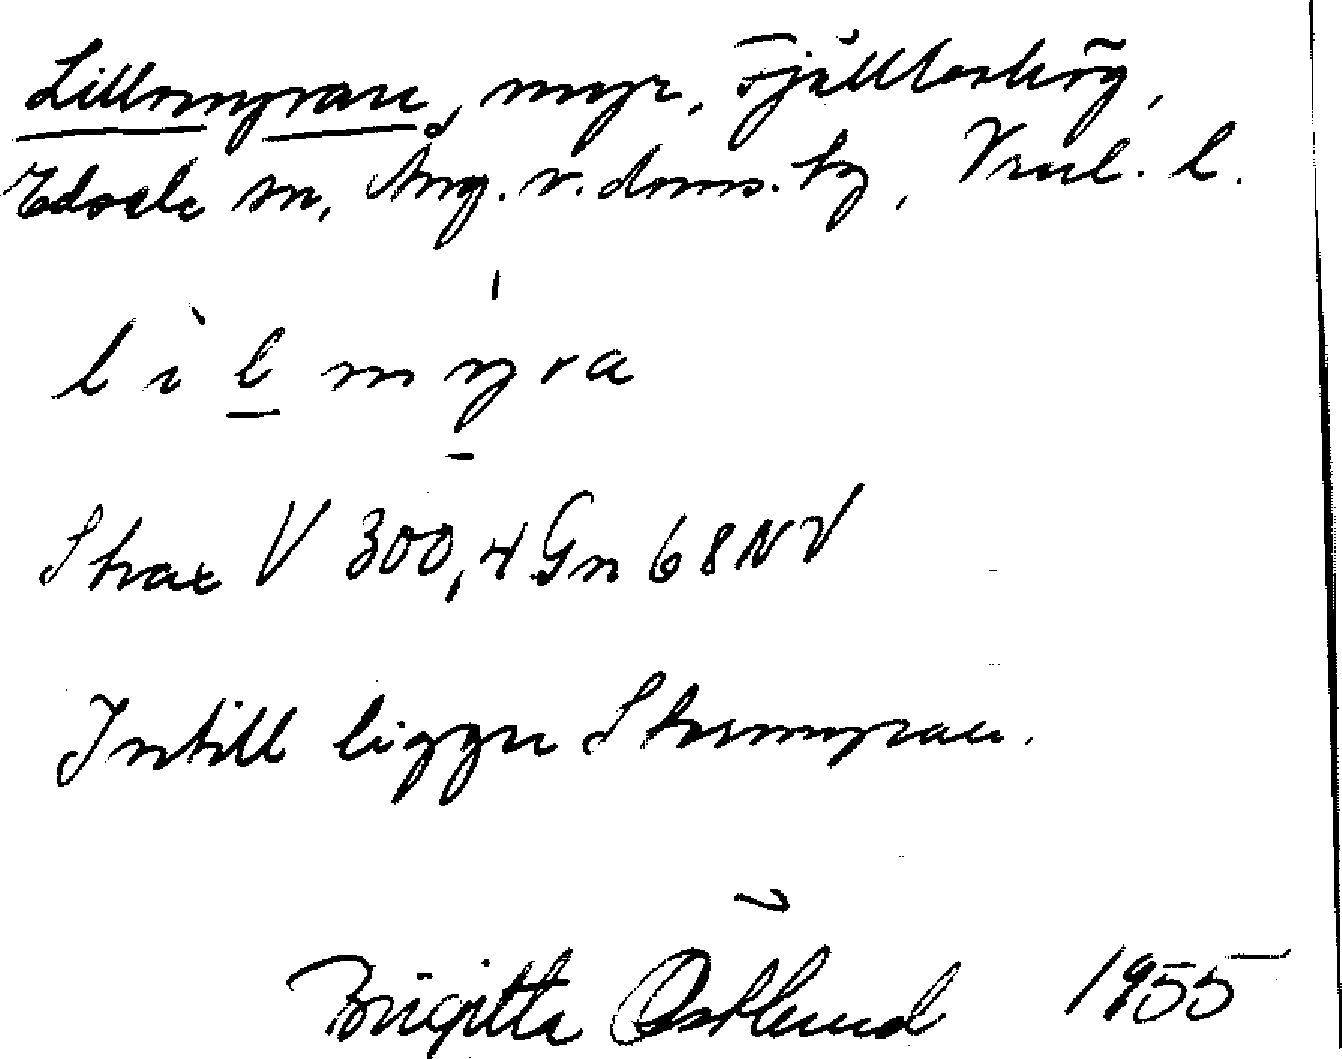 Lillmyran, myr, Fjälltorshög,
Edsele sn, Ång. v. doms. tg, Vnl. l.
l ì l m y r a
Strax V 300,4 Gn 68 NV
Intill ligger Stormyran.
Birgitta Östlund 1955